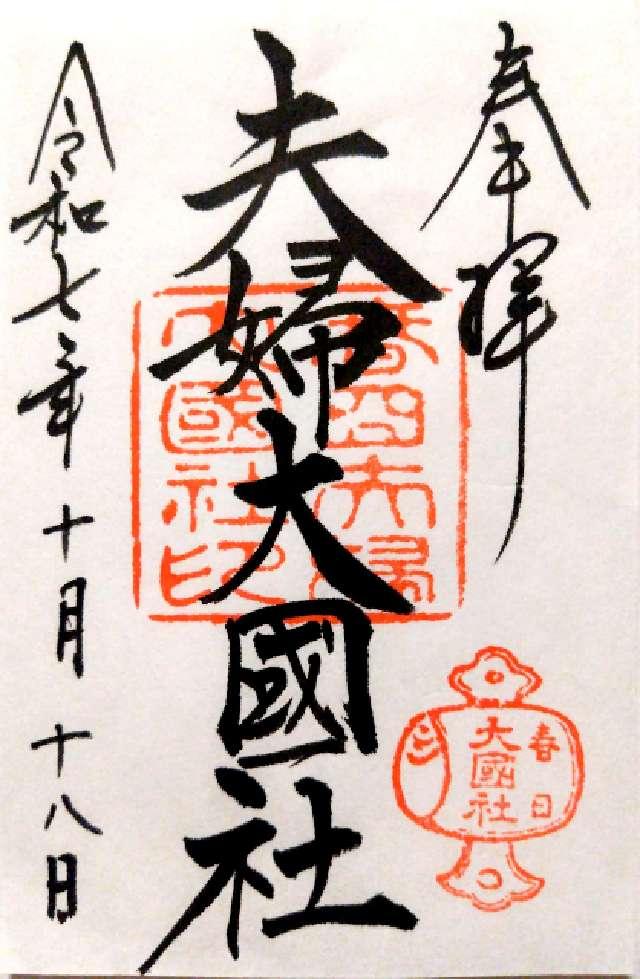 奉拝
夫婦大國社
春日夫婦
大國社印
春日
大國社
令和七年十月十八日